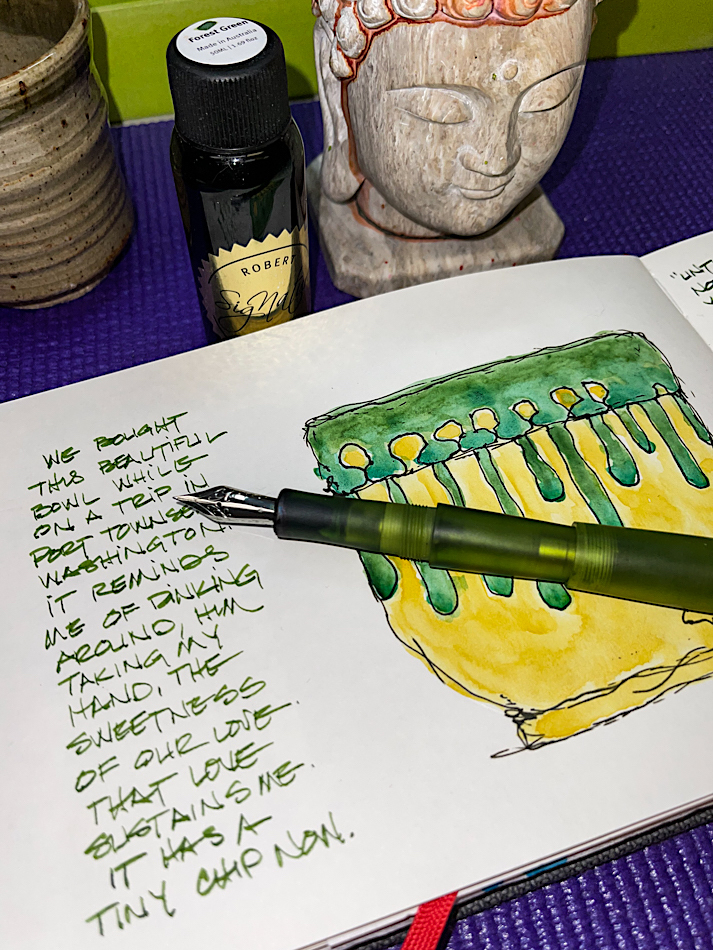 Forest Green
Made in Australia
50ML | 1.69 floz
ROBERT
Signat
WE BOUGHT
THIS BEAUTIFUL
BOWL WHILE
ON A TRIP IN
PORT TOWNSE
WASHINGTON
IT REMINDS
ME OF DINKING
AROUND, HIM
TAKING MY
HAND, THE
SWEETNESS
OF OUR LOVE.
THAT LOVE
SUSTAINS ME.
IT HAS A
TINY CHIP NOW.